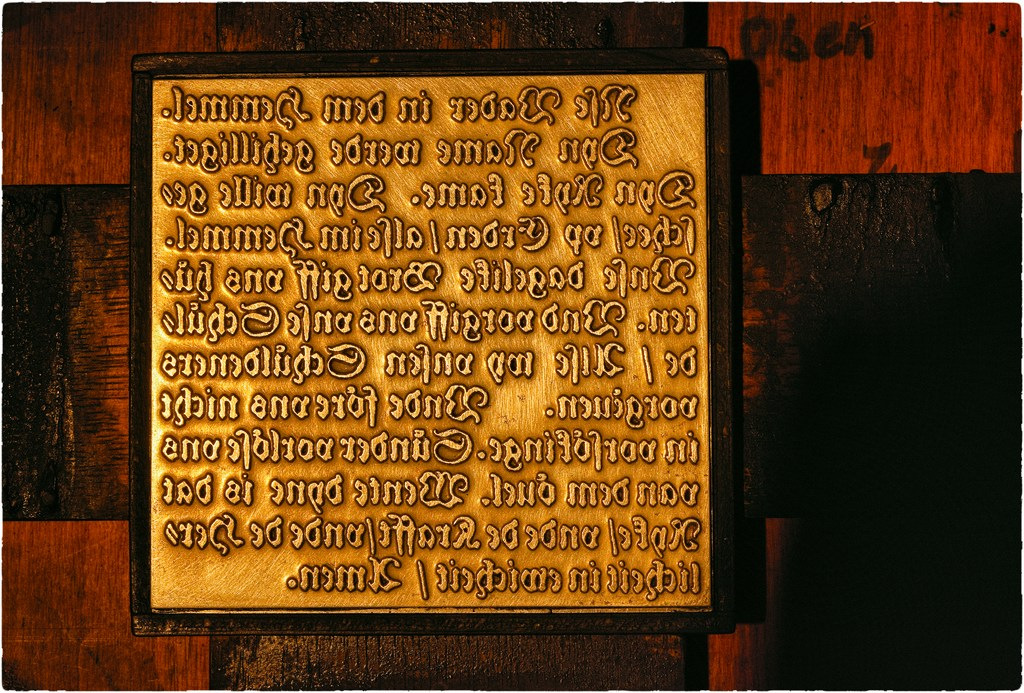 Oben
7.
Nſe Vader in dem Hemmel.
Dyn Name werde gehilliget.
Dyn Ryke kame. Dyn wille ge⸗
ſchee/ vp Erden / alſe im Hemmel.
Vnſe dagelike Brot giff vns huͤ⸗
ten. Vnd vorgiff vns vnſe Schuͤl⸗
de / Alſe wy vnſen Schuͤldeners
vorgeuen. Vnde foͤre vns nicht
in vorſoͤkinge. Suͤnder vorloͤſe vns
van dem oͤuel. Wente dyne is dat
Ryke/ vnde de Krafft/ vnde de Her⸗
licheit in ewicheit / Amen.